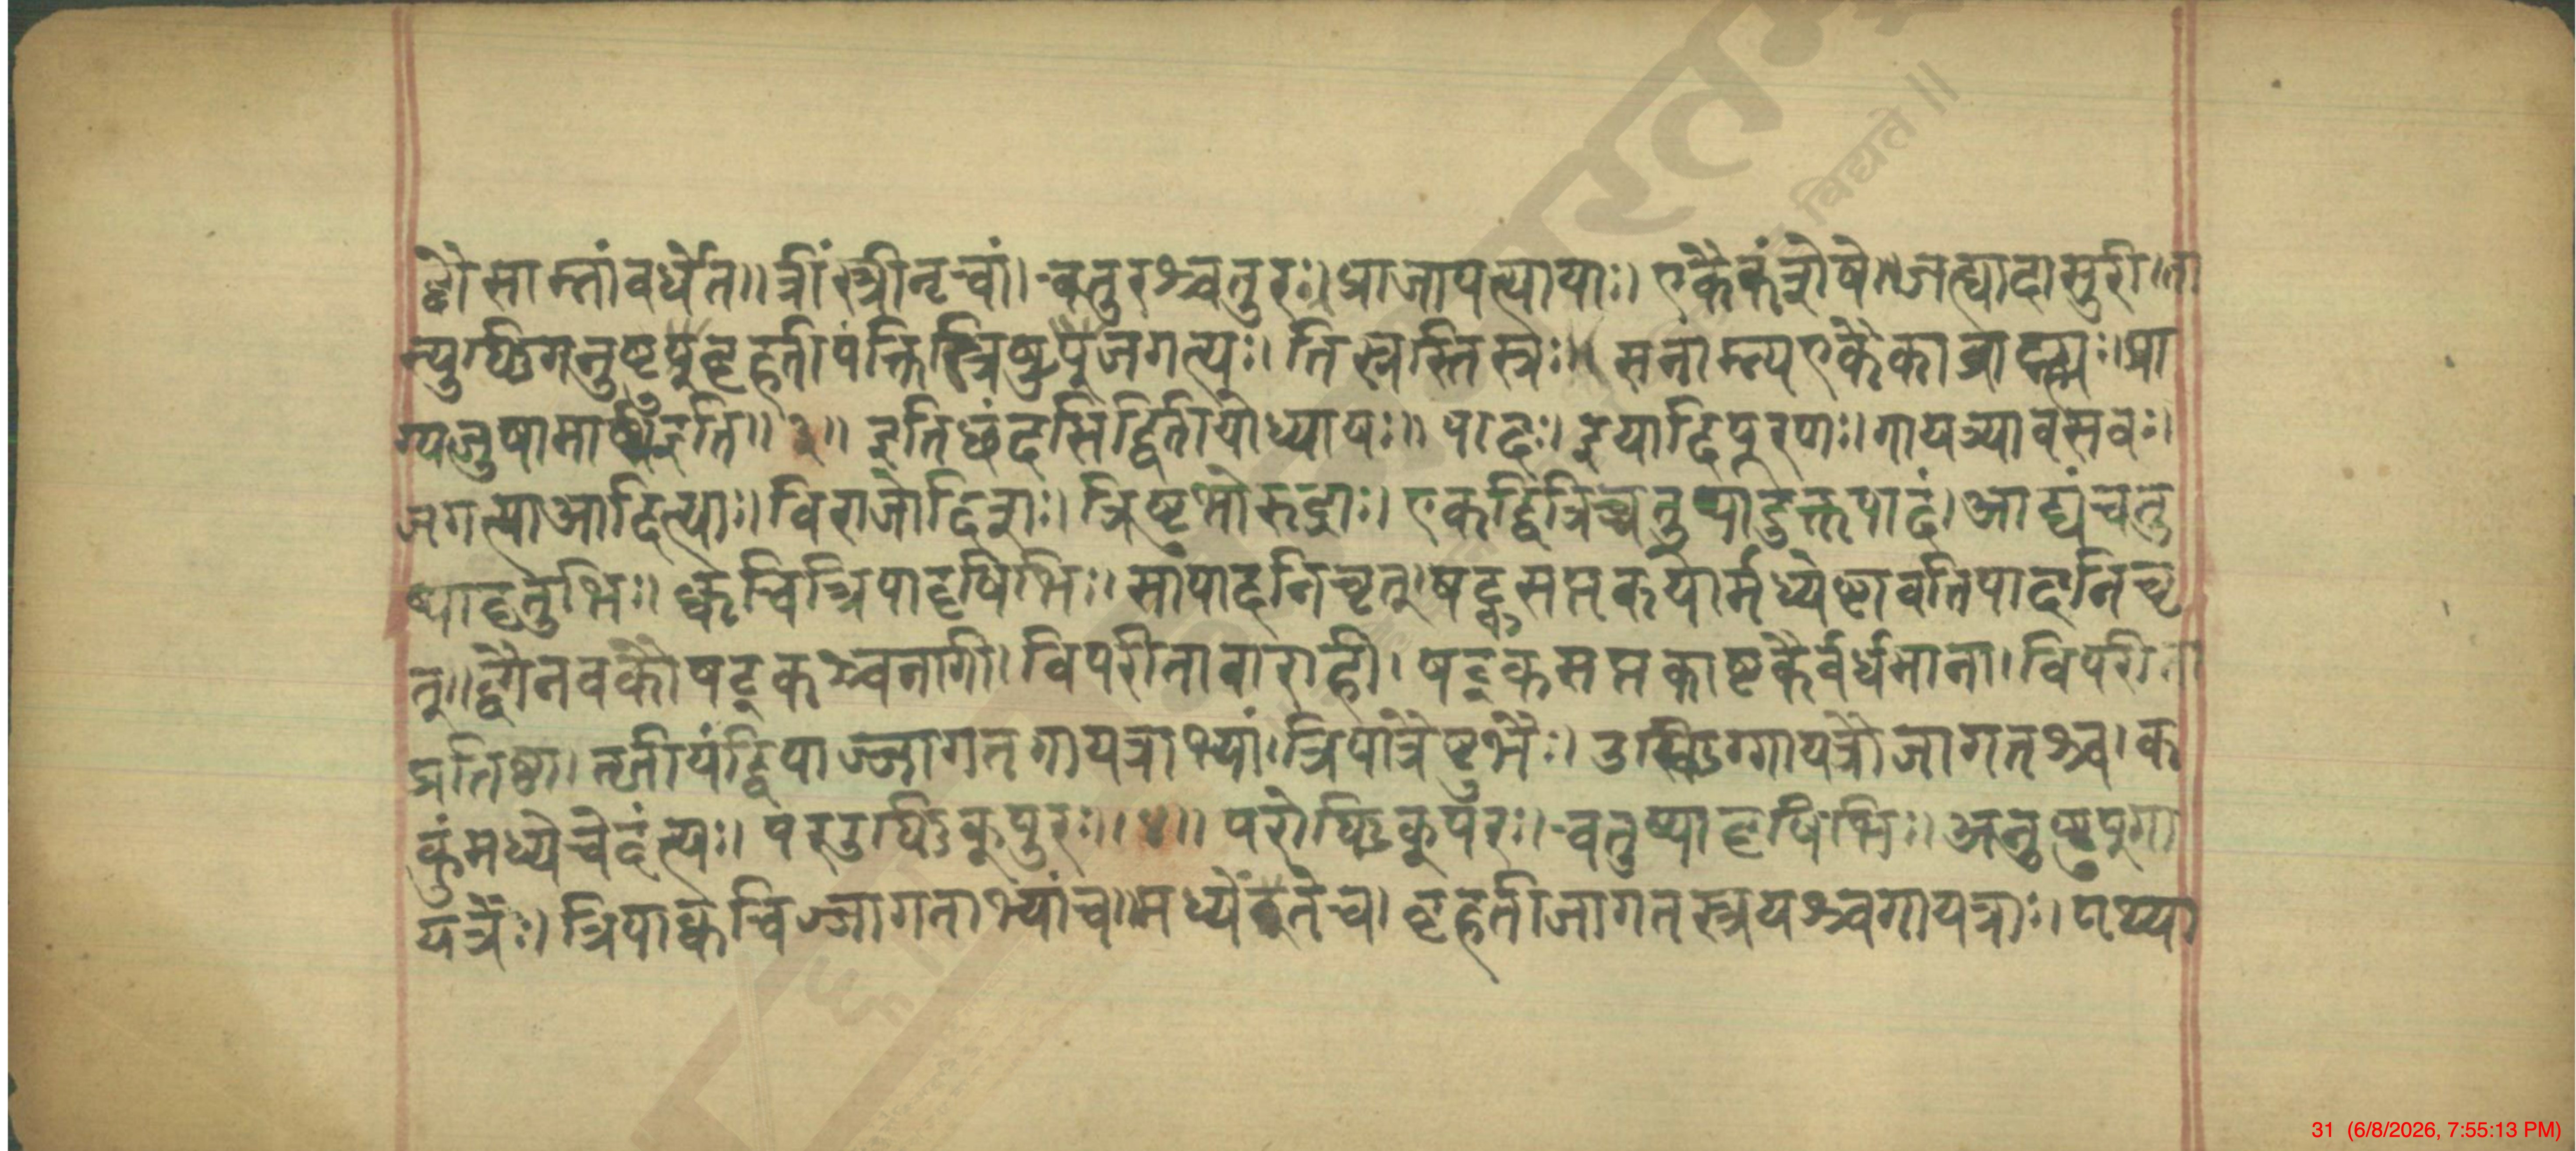 द्वौ साम्नां वर्धेत॥ त्रींस्त्रीनृचां। चतुरश्चतुरः। प्राजापत्यायाः। एकैकं शेषे॥ जह्यादासुरी। ता
न्युष्णिगनुष्टुप्बृहतीपंक्तिस्त्रिष्टुप्जगत्यः। तिस्रस्तिस्रः। सनाम्न्य एकैका ब्राह्म्यः। प्रा
ग्यजुषामार्ष्य इति॥ ३॥ इति छंदसि द्वितीयोध्यायः॥ पादः। इयादिपूरणः। गायत्र्या वसवः।
जगत्या आदित्याः। विराजो दिशः। त्रिष्टुभो रुद्राः। एकद्वित्रिचतुष्पादुक्तपादं। आद्यं चतु
ष्पादृतुभिः। क्वचित्रिपादृषिभिः। सा पादनिचृत्। षट्कसप्तकयोर्मध्येष्टावतिपादनिचृ
त्॥ द्वौ नवकौ षट्कश्च नागी। विपरीता वाराही। षट्कसप्तकाष्टकैर्वर्धमाना। विपरीता
प्रतिष्ठा। तृतीयं द्विपाज्जागतगायत्राभ्यां। त्रिपात्रैष्टुभैः। उष्णिग्गायत्रौ जागतश्च। क
कुंमध्ये चेदंत्यः। परउष्णिक्पुरः॥ ४॥ परोष्णिक्परः। चतुष्पादृषिभिः। अनुष्टुप्गा
यत्रैः। त्रिपात्क्वचिज्जागताभ्यां च॥ मध्येंते च। बृहती जागतस्त्रयश्च गायत्राः। पथ्या